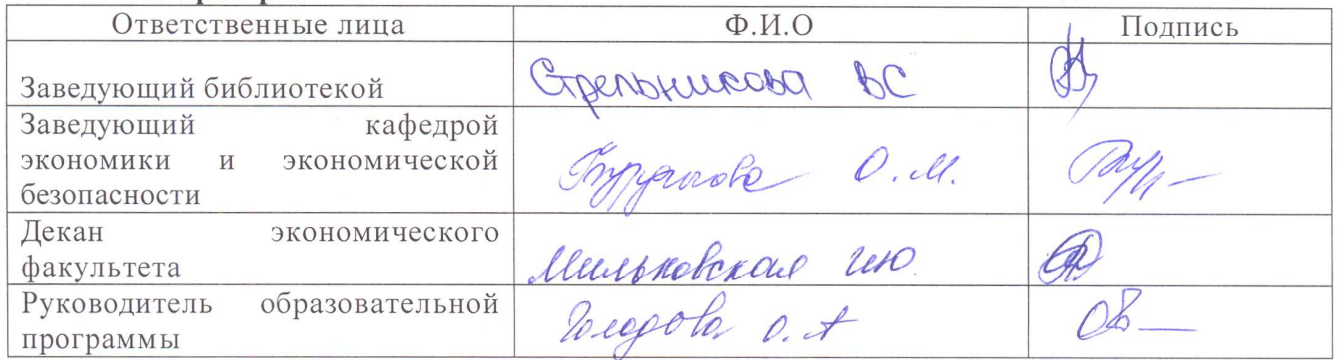 Ответственные лица Ф.И.О Подпись
Заведующий библиотекой Стрельникова ВС
Заведующий кафедрой
экономики и экономической О.М.
безопасности
Декан экономического
факультета Мильковская ИЮ
Руководитель образовательной
программы О.А